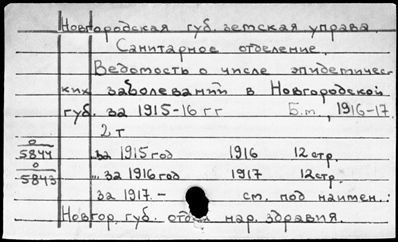 Новгородская губ. земская управа.
Санитарное отделение.
Ведомость о числе эпидемичес-
ких заболеваний в Новгородской
губ. за 1915-16 гг Б.м., 1916-17.
2 т
0/5844 „за 1915 год 1916 12 стр.
0/5843 „. за 1916 год 1917 12 стр.
за 1917. - см. под наимен.:
Новгор. губ. отдел нар. здравия.